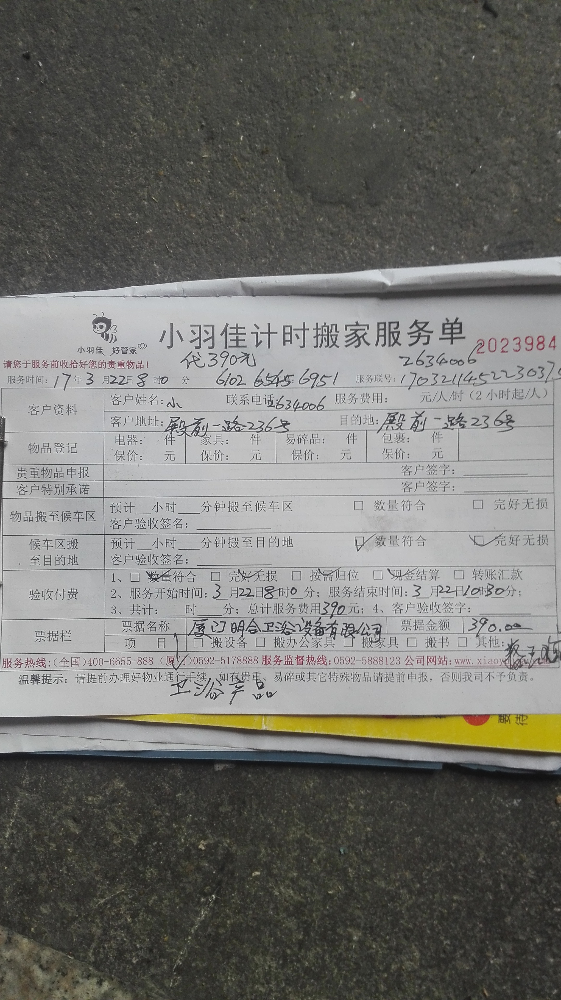 小羽佳 好管家
小羽佳计时搬家服务单
2023984
请您于服务前收拾好您的贵重物品!
代390元
2634006
服务时间: 17年 3月22日8时10分 6102 6545 6951 服务联号: 170321145223037
客户资料 客户姓名: 小 联系电话: 2634006 服务费用: 元/人/时(2小时起/人)
客户地址: 殿前一路236号 目的地: 殿前一路236号
物品登记 电器: 件 家具: 件 易碎品: 件 包裹: 件
保价: 元 保价: 元 保价: 元 保价: 元
贵重物品申报 客户签字:
客户特别承诺 客户签字:
物品搬至候车区 预计 小时 分钟搬至候车区 □ 数量符合 □ 完好无损
客户验收签名:
候车区搬至目的地 预计 小时 分钟搬至目的地 □ 数量符合 □ 完好无损
客户验收签名:
验收付费 1、□ 数量符合 □ 完好无损 □ 按需归位 □ 现金结算 □ 转账汇款
2、服务开始时间: 3月22日8时10分; 服务结束时间: 3月22日10时30分;
3、共计: 时 分; 总计服务费用390元; 4、客户验收签字:
票据栏 票据名称 厦门明合卫浴设备有限公司 票据金额 390.00
项 目 □ 搬设备 □ 搬办公家具 □ 搬家具 □ 搬书 □ 其他:
服务热线:(全国)400-6655 888 (厦门)0592-5178888 服务监督热线:0592-5888123 公司网站:www.xiaoy
温馨提示: 请提前办理好物业进行手续, 如有贵重、易碎或其它特殊物品请提前申报, 否则我司不予负责。
卫浴产品